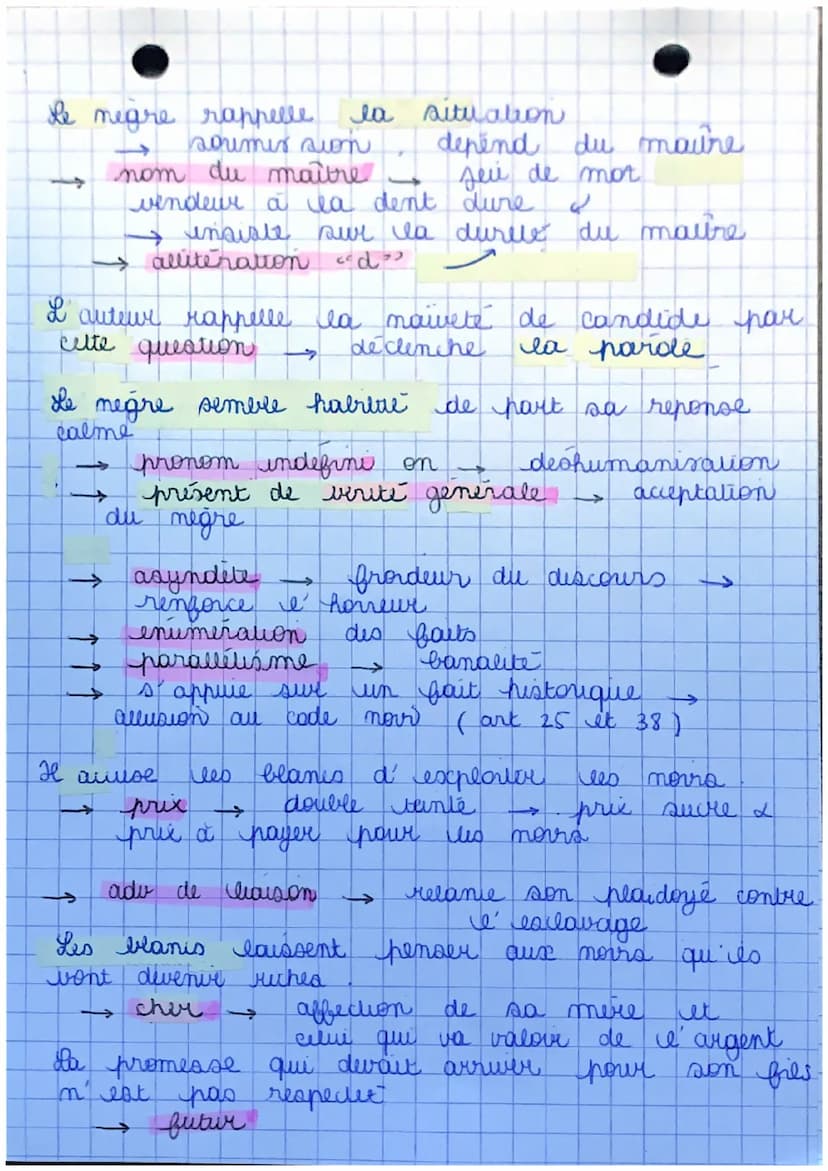 Le negre rappelle la situation
→ soumission, dépend du maître
→ nom du maître → jeu de mot
vendeur à la dent dure
→ insiste sur la dureté du maître
→ allitération "d"
L'auteur rappelle la naïveté de candide par
cette question → déclenche la parole
Le negre semble habitué de part sa reponse
calme
→ pronom indefini on → deshumanisation
→ présent de verité générale → acceptation
du negre
→ asyndète → froideur du discours →
renforce l'horreur
→ enumération des faits
→ parallélisme → banalité
→ s'appuie sur un fait historique →
allusion au code noir (art 25 et 38)
Il accuse les blancs d'exploiter les noirs.
→ prix → double teinté → prix sucre &
prix à payer pour les noirs
→ adv de liaison → relance son plaidoyé contre
l'esclavage
Les blancs laissent penser aux noirs qu'ils
vont devenir riches.
→ cher → affection de sa mère et
celui qui va valoir de l'argent
La promesse qui devait arriver pour son fils
n'est pas respecter
→ futur